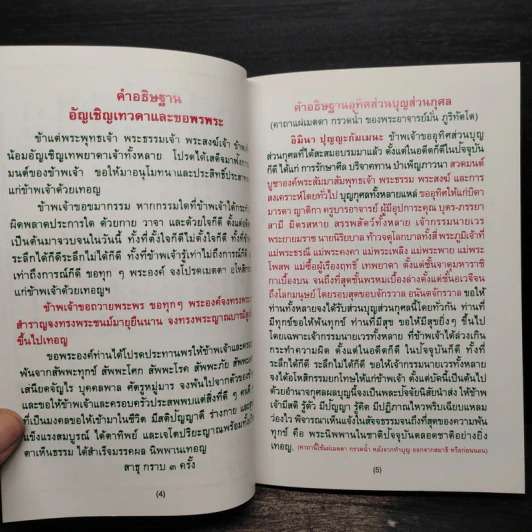 คำอธิษฐาน
อัญเชิญเทวดาและขอพรพระ
ข้าแต่พระพุทธเจ้า พระธรรมเจ้า พระสงฆ์เจ้า
น้อมอัญเชิญเทพยาดาเจ้าทั้งหลาย โปรดได้เสด็จมาฟังการ
มนต์ของข้าพเจ้า ขอให้มาอนุโมทนาและประสิทธิประสาท
แก่ข้าพเจ้าด้วยเทอญ
ข้าพเจ้าขอขมากรรม หากกรรมใดที่ข้าพเจ้าได้กระทำ
ผิดพลาดประการใด ด้วยกาย วาจา และด้วยใจก็ดี ตั้งแต่อดีต
เป็นต้นมาจวบจนในวันนี้ ทั้งที่ตั้งใจก็ดีไม่ตั้งใจก็ดี ทั้งที่
ระลึกได้ก็ดีระลึกไม่ได้ก็ดี ทั้งที่ข้าพเจ้ารู้เท่าไม่ถึงการณ์ก็ดี
เท่าถึงการณ์ก็ดี ขอทุก ๆ พระองค์ จงโปรดเมตตา อโหสิกรรม
แก่ข้าพเจ้าด้วยเทอญฯ
ข้าพเจ้าขอถวายพระพร ขอทุกๆ พระองค์จงทรงพระ
สำราญจงทรงพระชนม์มายุยืนนาน จงทรงพระญาณบารมีสูงยิ่ง
ขึ้นไปเทอญ
ขอพระองค์ท่านได้โปรดประทานพรให้ข้าพเจ้าและครอบ
พ้นจากสัพพะทุกข์ สัพพะโศก สัพพะโรค สัพพะภัย สัพพะเคราะห์
เสนียดจัญไร บุคคลพาล ศัตรูหมู่มาร จงพ้นไปจากตัวของข้า
และขอให้ข้าพเจ้าและครอบครัวประสพพบแต่สิ่งที่ดี ๆ คนดี
ที่เป็นมงคลขอให้เข้ามาในชีวิต มีสติปัญญาดี ร่างกาย และ
แข็งแรงสมบูรณ์ ได้ตาทิพย์ และเจโตปริยะญาณพร้อมทั้ง
ตาเห็นธรรม ได้สำเร็จมรรคผล นิพพานเทอญ
สาธุ กราบ ๓ ครั้ง
(4)
คำอธิษฐานอุทิศส่วนบุญส่วนกุศล
(คาถาแผ่เมตตา กรวดน้ำ ของพระอาจารย์มั่น ภูริทัตโต)
อิมินา ปุญญะกัมเมนะ ข้าพเจ้าขออุทิศส่วนบุญ
ส่วนกุศลที่ได้สะสมอบรมมาแล้ว ตั้งแต่ในอดีตก็ดีในปัจจุบัน
ก็ดี ได้แก่ การรักษาศีล บริจาคทาน บำเพ็ญภาวนา สวดมนต์
บูชาองค์พระสัมมาสัมพุทธเจ้า พระธรรม พระสงฆ์ และการ
สงเคราะห์โดยทั่วไป บุญกุศลทั้งหลายแหล่ ขออุทิศให้แก่บิดา
มารดา ญาติกา ครูบาอาจารย์ ผู้มีอุปการะคุณ บุตร-ภรรยา
สามี มิตรสหาย สรรพสัตว์ทั้งหลาย เจ้ากรรมนายเวร
พระยายมราช นายนิริยบาล ท้าวจตุโลกบาลทั้งสี่ พระภูมิเจ้าที่
แม่พระธรณี แม่พระคงคา แม่พระเพลิง แม่พระพาย แม่พระ
โพสพ แม่ซื้อผู้เรืองฤทธิ์ เทพยาดา ตั้งแต่ชั้นจาตุมหาราชิ
กาเบื้องบน จนถึงที่สุดชั้นพรหมเบื้องล่างตั้งแต่ชั้นอเวจีจน
ถึงโลกมนุษย์ โดยรอบสุดขอบจักรวาล อนันตจักรวาล ขอให้
ท่านทั้งหลายจงได้รับส่วนบุญส่วนกุศลนี้โดยทั่วกัน ท่านที่
มีทุกข์ขอให้พ้นทุกข์ ท่านที่มีสุข ขอให้มีสุขยิ่งๆ ขึ้นไป
โดยเฉพาะเจ้ากรรมนายเวรทั้งหลาย ที่ข้าพเจ้าได้ล่วงเกิน
กระทำความผิด ตั้งแต่ในอดีตก็ดี ในปัจจุบันก็ดี ทั้งที่
ระลึกได้ก็ดี ระลึกไม่ได้ก็ดี ขอให้เจ้ากรรมนายเวรทั้งหลาย
จงได้อโหสิกรรมยกโทษให้แก่ข้าพเจ้า ตั้งแต่บัดนี้เป็นต้นไป
ด้วยอำนาจกุศลผลบุญนี้จงเป็นพละปัจจัยนิสัยนำส่ง ให้ข้าพ
เจ้ามีสติ รู้ตัว มีปัญญา รู้คิด มีปฏิภาณไหวพริบเฉียบแหลม
ว่องไว พิจารณาเห็นแจ้งในสัจธรรมจนถึงที่สุดของความพ้น
ทุกข์ คือ พระนิพพานในชาติปัจจุบันตลอดชาติอย่างยิ่ง
เทอญ. (คาถานี้ใช้แผ่เมตตา กรวดน้ำ หลังจากทำบุญ ออกจากสมาธิ หรือก่อนนอน)
(5)